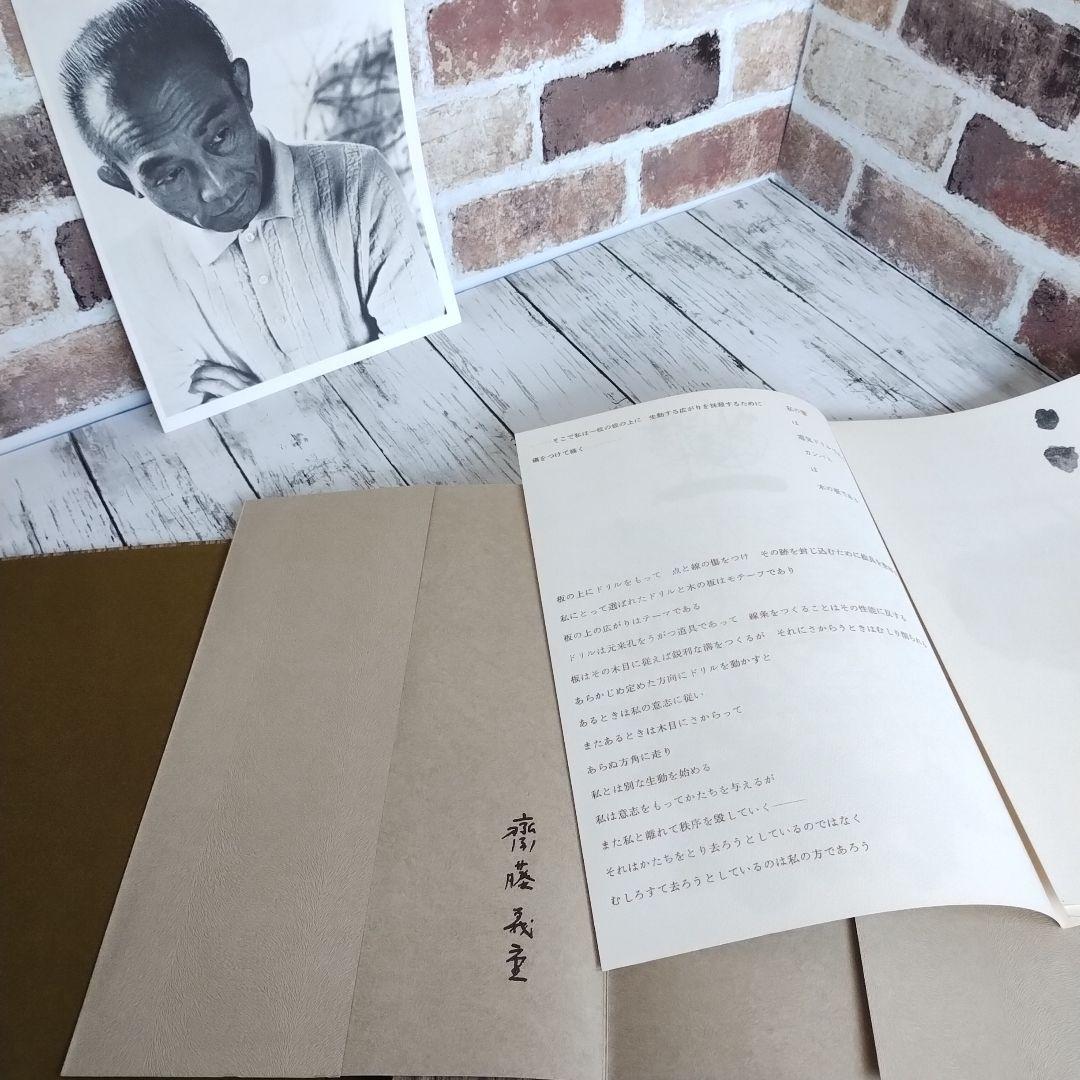 そこで私は一枚の板の上に　生動する広がりを
傷をつけて描く
私の
は
電気ドリル
カンバス
は
木の板であ
板の上にドリルをもって　点と線の傷をつけ　その跡を封じ込むために絵具を
私にとって選ばれたドリルと木の板はモチーフであり
板の上の広がりはテーマである
ドリルは元来孔をうがつ道具であって　線条をつくることはその性能に反する
板はその木目に従えば鋭利な溝をつくるが　それにさからうときはむしり
あらかじめ定めた方向にドリルを動かすと
あるときは私の意志に従い
またあるときは木目にさからって
あらぬ方角に走り
私とは別な生動を始める
私は意志をもってかたちを与えるが
また私と離れて秩序を毀していく───
それはかたちをとり去ろうとしているのではなく
むしろすて去ろうとしているのは私の方であろう
齋藤義重